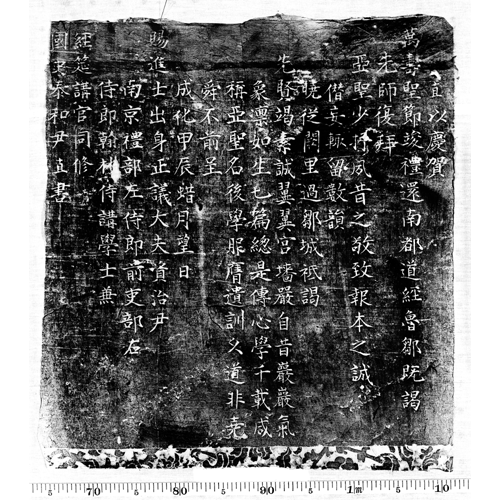 直以慶賀
萬壽聖節竣禮還南都道經魯鄒既謁
先師復拜
亞聖少抒夙昔之敬致報本之誠
僭妄輒留數韻
晚從闕里過鄒城祗謁
先賢竭素誠翼翼宮墻嚴自昔巖巖氣
象凜如生七篇總是傳心學千載咸
稱亞聖名後學服膺遺訓久道非堯
舜不前呈
成化甲辰蜡月望日
賜進士出身正議大夫資治尹
南京禮部左侍郎前吏部右
侍郎翰林侍講學士兼
經筵講官同修
國史泰和尹直書
5 70 80 90 1m 5 10